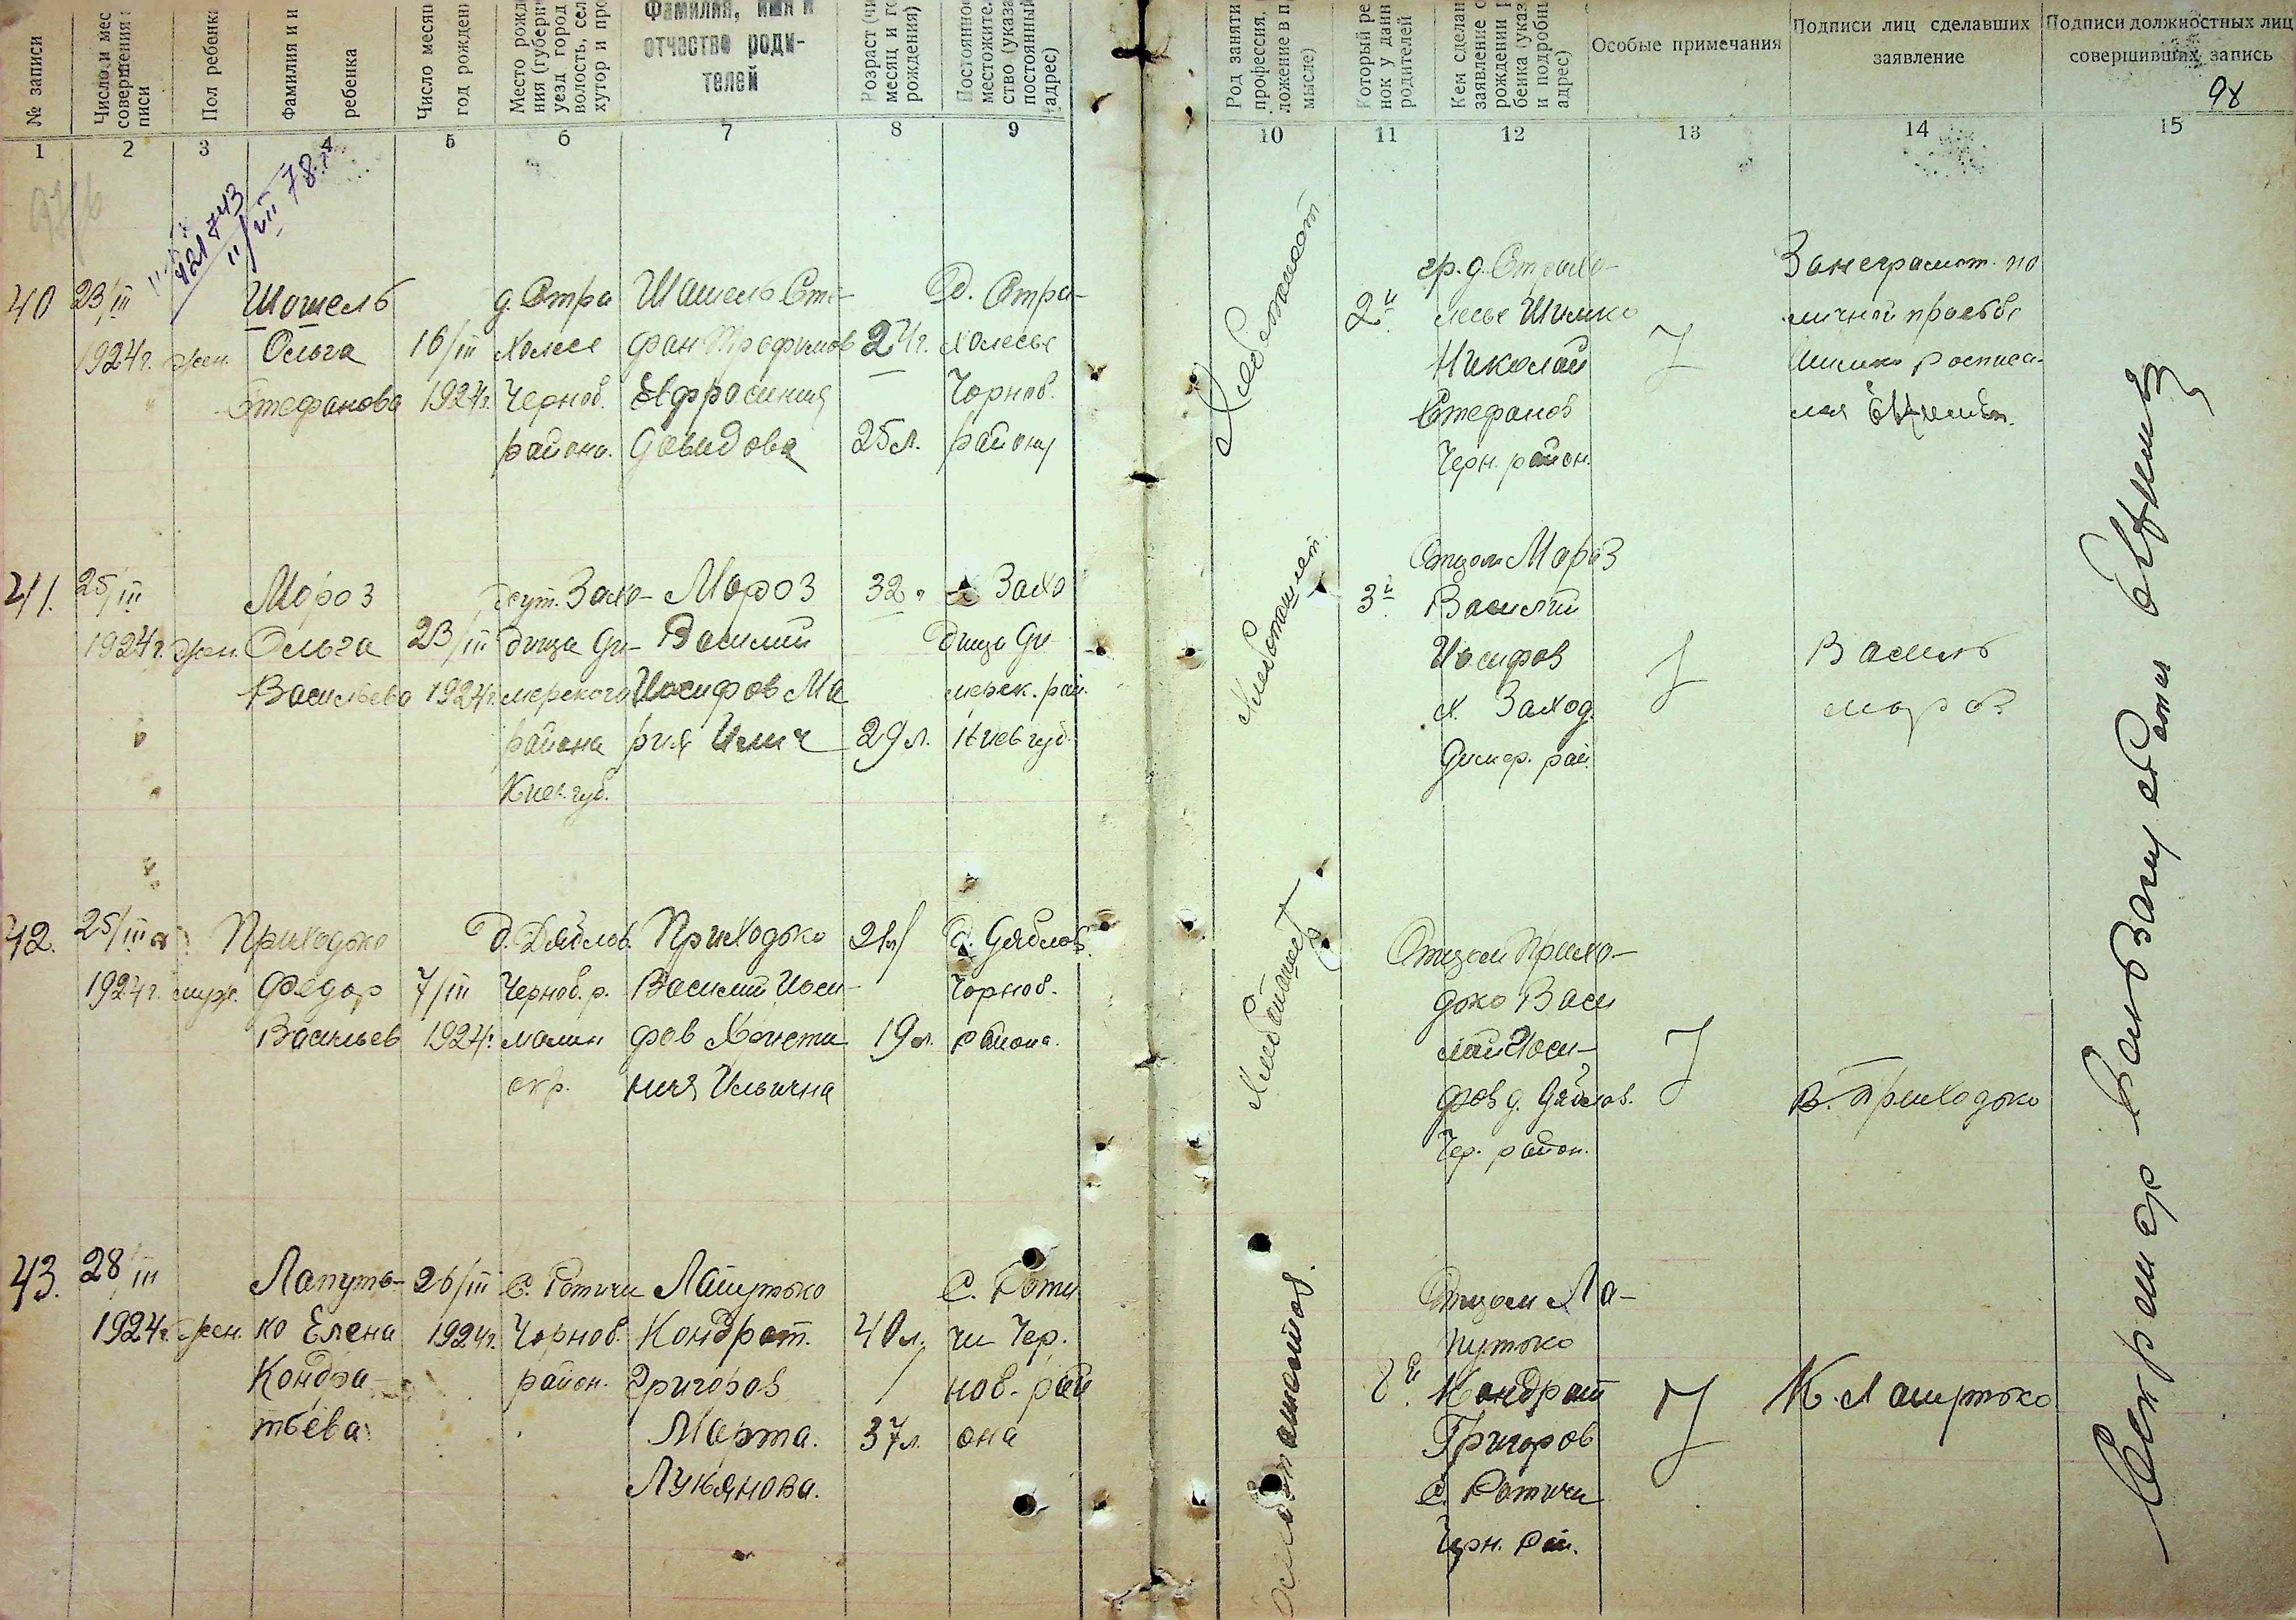 № записи
Число и мес
совершения
писи
Пол ребенк
Фамилия и и
ребенка
Число месяц
год рожден
Место рожд
ния (губерн
уезд город
волость, сел
хутор и про
фамилия, имя и
отчество роди-
телей
Возраст (чи
месяц и го
рождения)
Постоянно
местожител
ство (указа
постоянный
адрес)
Род заняти
профессия,
ложение в п
мысле)
Который ре
нок у данн
родителей
Кем сделан
заявление о
рождении р
бенка (указ
и подробн
адрес)
Особые примечания
Подписи лиц сделавших
заявление
Подписи должностных лиц
совершивших запись
98
1 2 3 4 5 6 7 8 9 10 11 12 13 14 15
421743
11/VII 78 г.
40
23/III
1924 г.
жен.
Шошель
Ольга
Стефанова
16/III
1924 г.
д. Стра
холесе
Чернов.
района.
Шашель Сте-
фан Трофимов
Евфросиния
Давидова
24 г.
25 л.
Д. Стра-
холесье
Чорнов.
району
Хлебопашест
2й
гр. д. Страхо-
лесье Шишко
Николай
Стефанов
Черн. район.
За неграмот. по
личной просьбе
росписа-
лся
41.
25/III
1924 г.
жен.
Мороз
Ольга
Васильева
23/III
1924 г.
хут. Захо-
дища Ди-
мерского
района
Киев. губ.
Мороз
Василий
Иосифов Ма
рия Илич
32
29 л.
х Захо
дища Ди
мерск. рай.
Киев губ.
Хлебопашест.
3й
Отцом Мороз
Василий
Иосифов
х. Заход.
Димер. рай.
Василь
мороз
42.
25/III
1924 г.
муж.
Приходько
Федор
Васильев
7/III
1924 г.
Д. Дяблов.
Чернов. р.
малин
окр.
Приходько
Василий Иоси-
фов Христи
ния Ильична
21
19 л.
Д. Дяблов.
Чорнов.
района.
Хлебопашест
Отцом Прихо-
дько Васи
лий Иоси-
фов д. Дяблов.
Чер. район.
В. Приходько
43.
28/III
1924 г.
жен.
Лапуть-
ко Елена
Кондра
тьева
26/III
1924 г.
С. Ротичи
Чорнов.
район.
Лапутько
Кондрат.
Григоров
Марта.
Лукьянова.
40 л.
37 л.
С. Роти
чи Чер.
нов. рай
она
Отцом Ла-
путько
Кондрат
Григоров
С. Ротичи
Чрн. Рай.
К. Лапутько
Секретарь